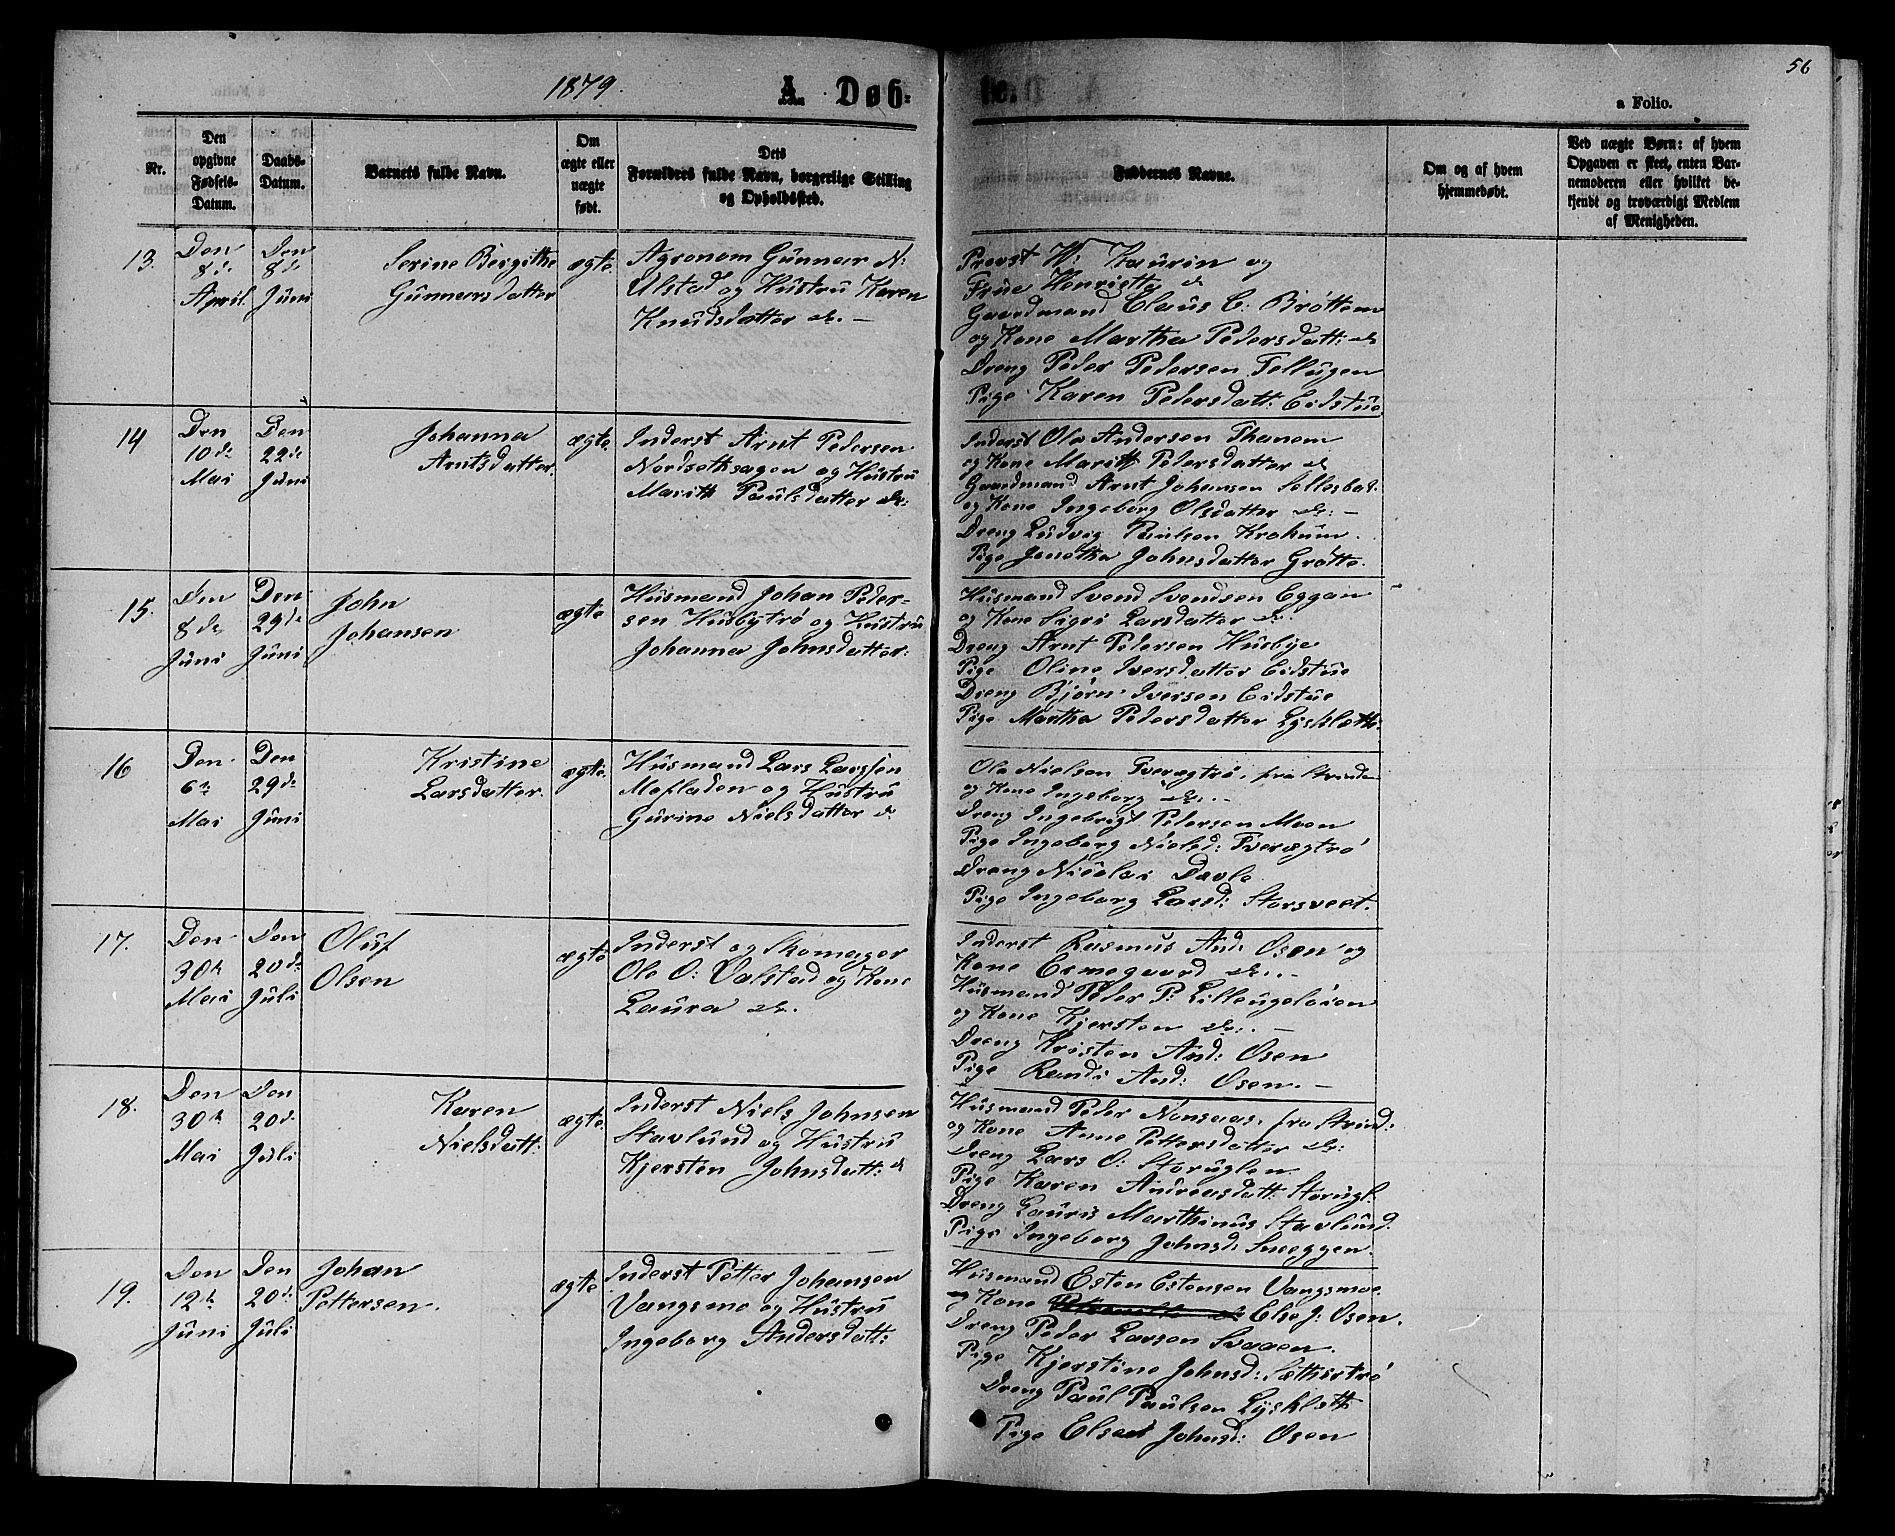 1879.
A. Døb-
56
a Folio.
Nr.
Den opgivne Fødsels-Datum.
Daabs-Datum.
Barnets fulde Navn.
Om ægte eller uægte født.
Dets Forældres fulde Navn, borgerlige Stilling og Opholdssted.
Faddernes Navne.
Om og af hvem hjemmedøbt.
Ved uægte Børn: af hvem Opgaven er skeet, enten Barnemoderen eller hvilket bekjendt og troværdigt Medlem af Menigheden.
13.
Den 8de April
Den 8de Juni
Serine Bergithe
Gunnarsdatter
ægte
Agronom Gunnar N:
Ulstad og Hustru Karen
Knudsdatter ds. –
Provst W: Kaurin og
Frue Henriette ds
Gaardmand Claus C. Brøttem
og Kone Martha Pedersdatt: ds
Dreng Peder Pedersen Tellugen
Pige Karen Pedersdatt: Eidstue
14
Den 10de Mai
Den 22de Juni
Johanna
Arntsdatter.
ægte
Inderst Arnt Pedersen
Nordsethsagen og Hustru
Marith Paulsdatter ds:
Inderst Ole Andersen Thanem
og Kone Marith Pedersdatter ds
Gaardmand Arnt Johansen
og Kone Ingeborg Olsdatter ds: –
Dreng Ludvig Paulsen Krokum.
Pige Johnsdatter Grøtte.
15.
Den 8de Juni
Den 29de Juni
John
Johansen
ægte
Husmand Johan Peder-
sen Husbytrø og Hustru
Johanna Johnsdatter:
Husmand Svend Svendsen Eggan
og Kone Sigri Larsdatter ds.
Dreng Arnt Pedersen Husbye
Pige Oline Iversdatter Eidstue
Dreng Bjørn Iversen Eidstue
Pige Martha Pedersdatter Lysklætt:
16
Den 6te Mai
Den 29de Juni
Kristine
Larsdatter.
ægte.
Husmand Lars Larssen
Mosladen og Hustru
Gurine Nielsdatter ds
Ole Nielsen Tveregtrø, fra Strinda
og Kone Ingeborg ds. –
Dreng Ingebrigt Pedersen Moen
Pige Ingeborg Nielsd: Tveregtrø
Dreng Nicolai Davle
Pige Ingeborg Larsd: Storsveet.
17.
Den 30te Mai
Den 20de Juli
Oluf
Olsen
ægte
Inderst og Skomager
Ole O: Valstad og Kone
Laura ds.
Inderst Rasmus And: Osen og
Kone Ermegaard ds. –
Husmand Peder P: Lilleugeløien
og Kone Kjersten ds: –
Dreng Kristen And: Osen
Pige Randi And: Osen. –
18.
Den 30te Mai
Den 20de Juli
Karen
Nielsdatt:
ægte.
Inderst Niels Johnsen
Stavlund og Hustru
Kjersten Johnsdatt: ds
Husmand Peder Nonsaas, fra Strind:
og Kone Anne Pettersdatter ds:
Dreng Lars O: Storuglen
Pige Karen Andreasdatt: Storugl:
Dreng Lauris Marthinus Stavlund.
Pige Ingeborg Johnsd: Sneeggen.
19.
Den 12te Juni
Den 20de Juli
Johan
Pettersen.
ægte
Inderst Petter Johansen
Vangsmo og Hustru
Ingeborg Andersdatt:
Husmand Esten Estensen Vangsmoe
og Kone Else J: Osen.
Dreng Peder Larsen Svaaen.
Pige Kjerstine Johnsd: Sæthertrø
Dreng Paul Paulsen Lysklett
Pige Else Johnsd: Osen